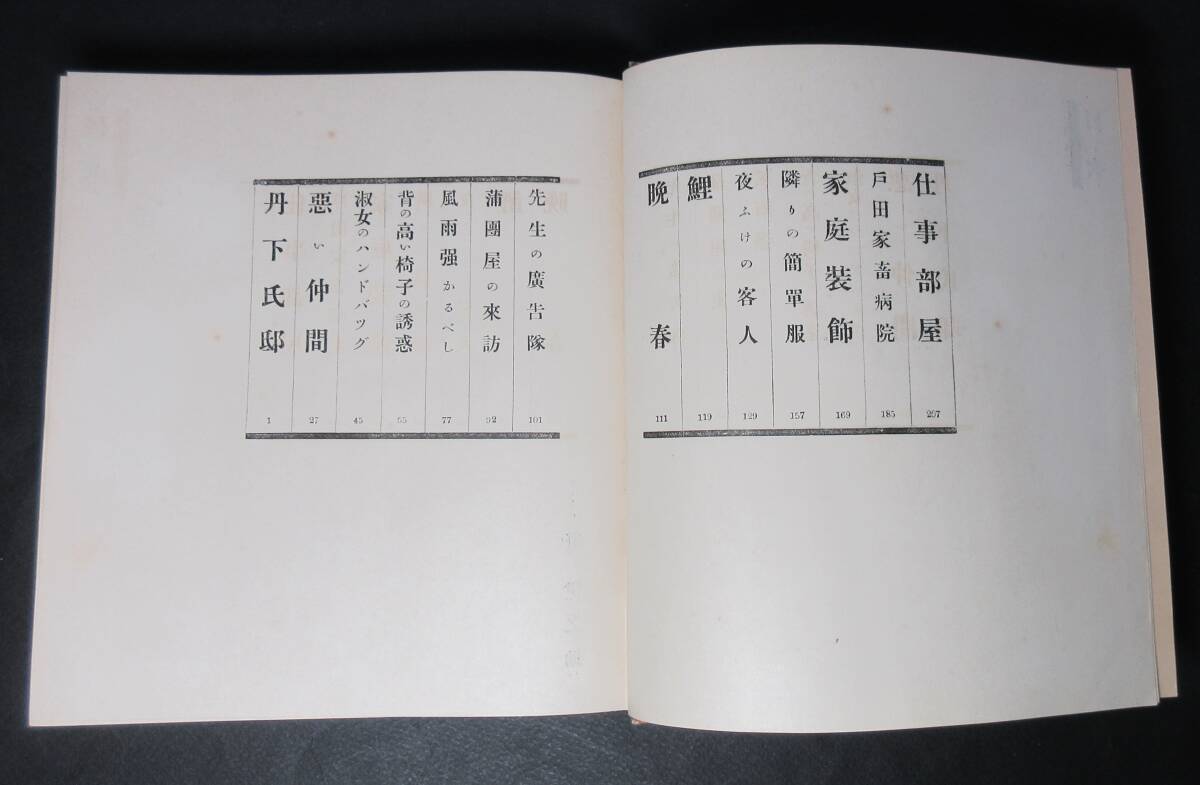 仕事部屋
戸田家畜病院 185
家庭裝飾 169
隣りの簡單服 157
夜ふけの客人 129
鯉 119
晩春 111
先生の廣告隊 101
蒲團屋の來訪 92
風雨强かるべし 77
背の高い椅子の誘惑 55
淑女のハンドバツグ 45
惡い仲間 27
丹下氏邸 1